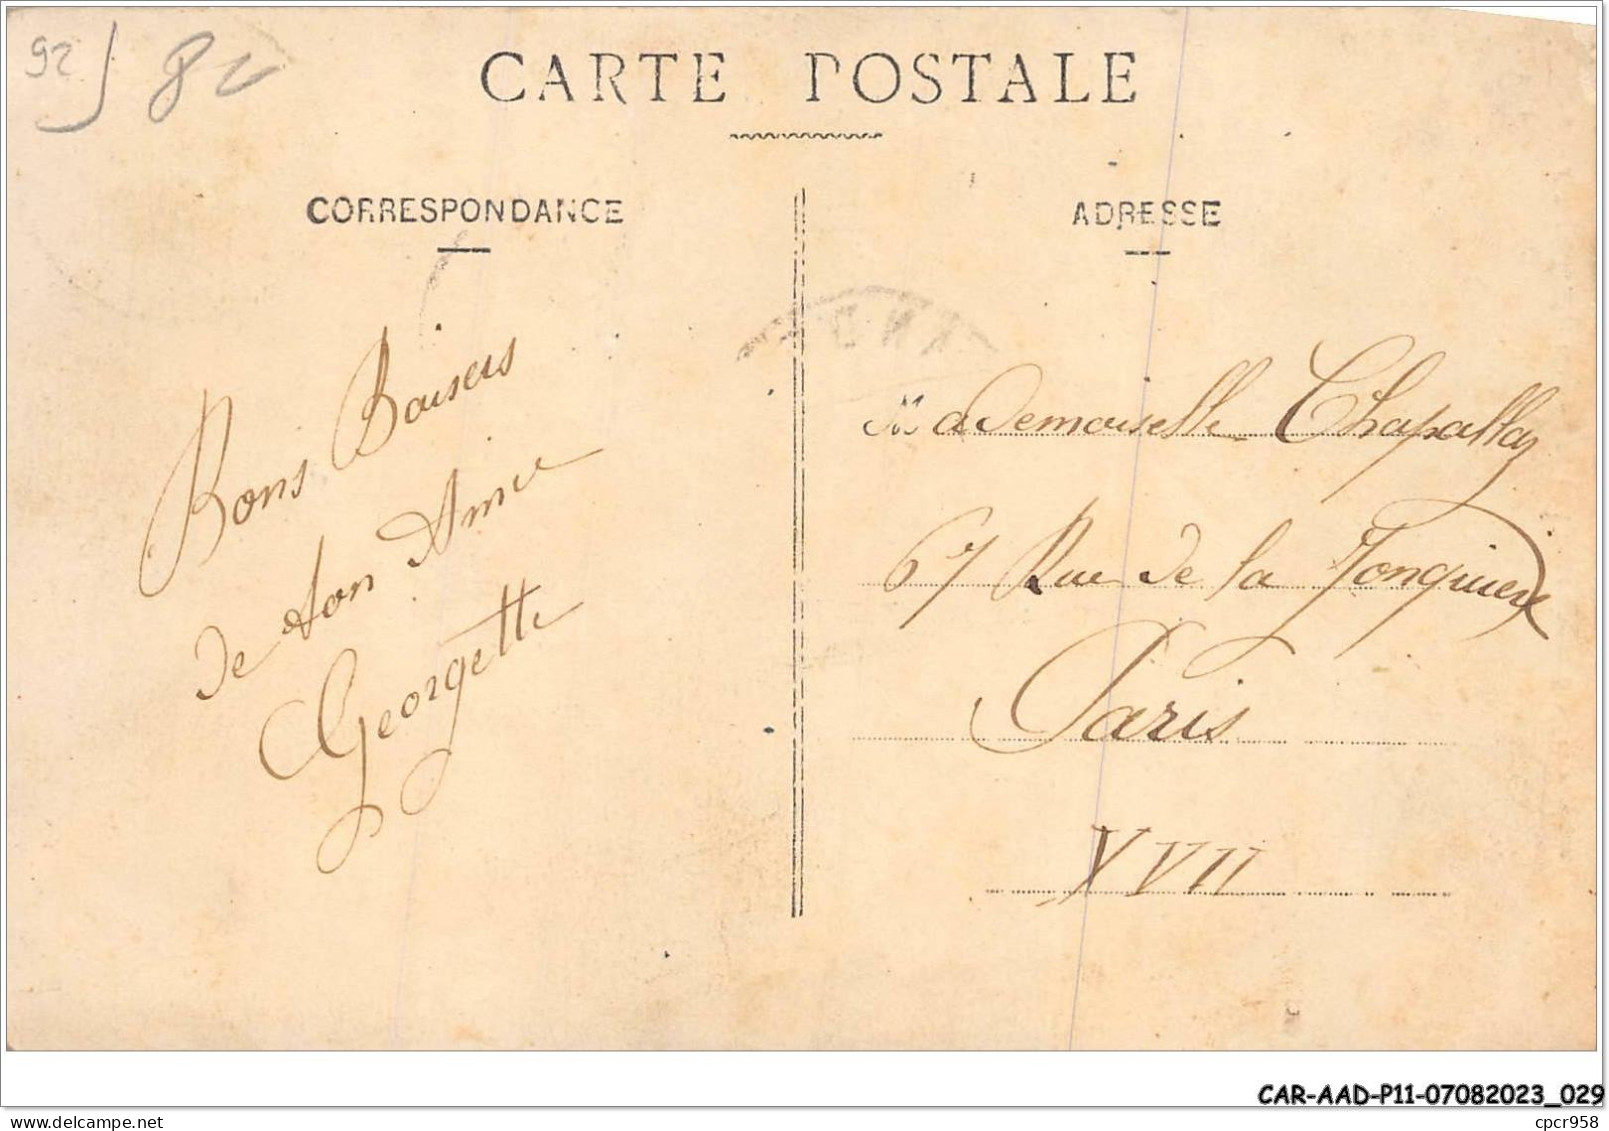 92 8
CARTE POSTALE
CORRESPONDANCE
ADRESSE
Bons Baisers
de ton Amie
Georgette
Mademoiselle Chapallaz
67 Rue de la Jonquière
Paris
XVII
CAR-AAD-P11-07082023_029
www.delcampe.net
cpcr958